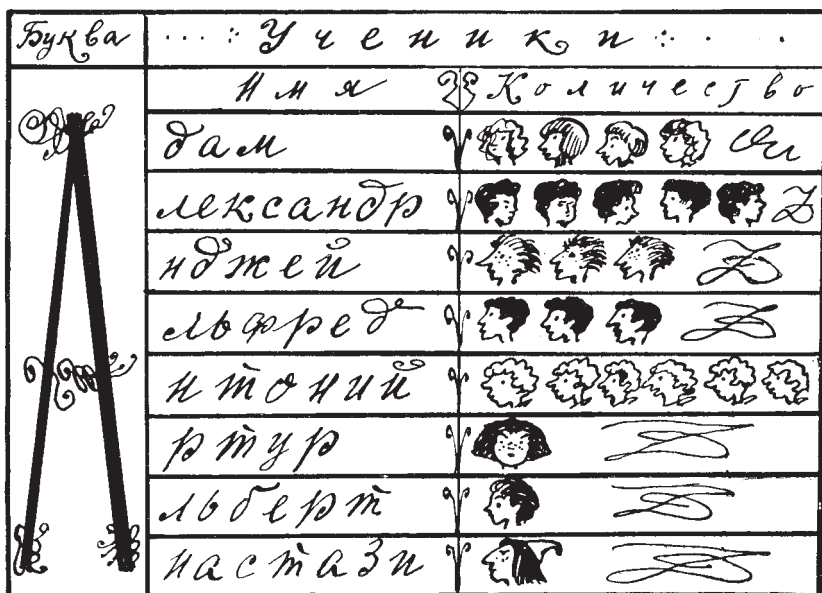 Буква Ученики
Имя Количество
А
дам
лександр
нджей
льфред
нтоний
ртур
льберт
настази